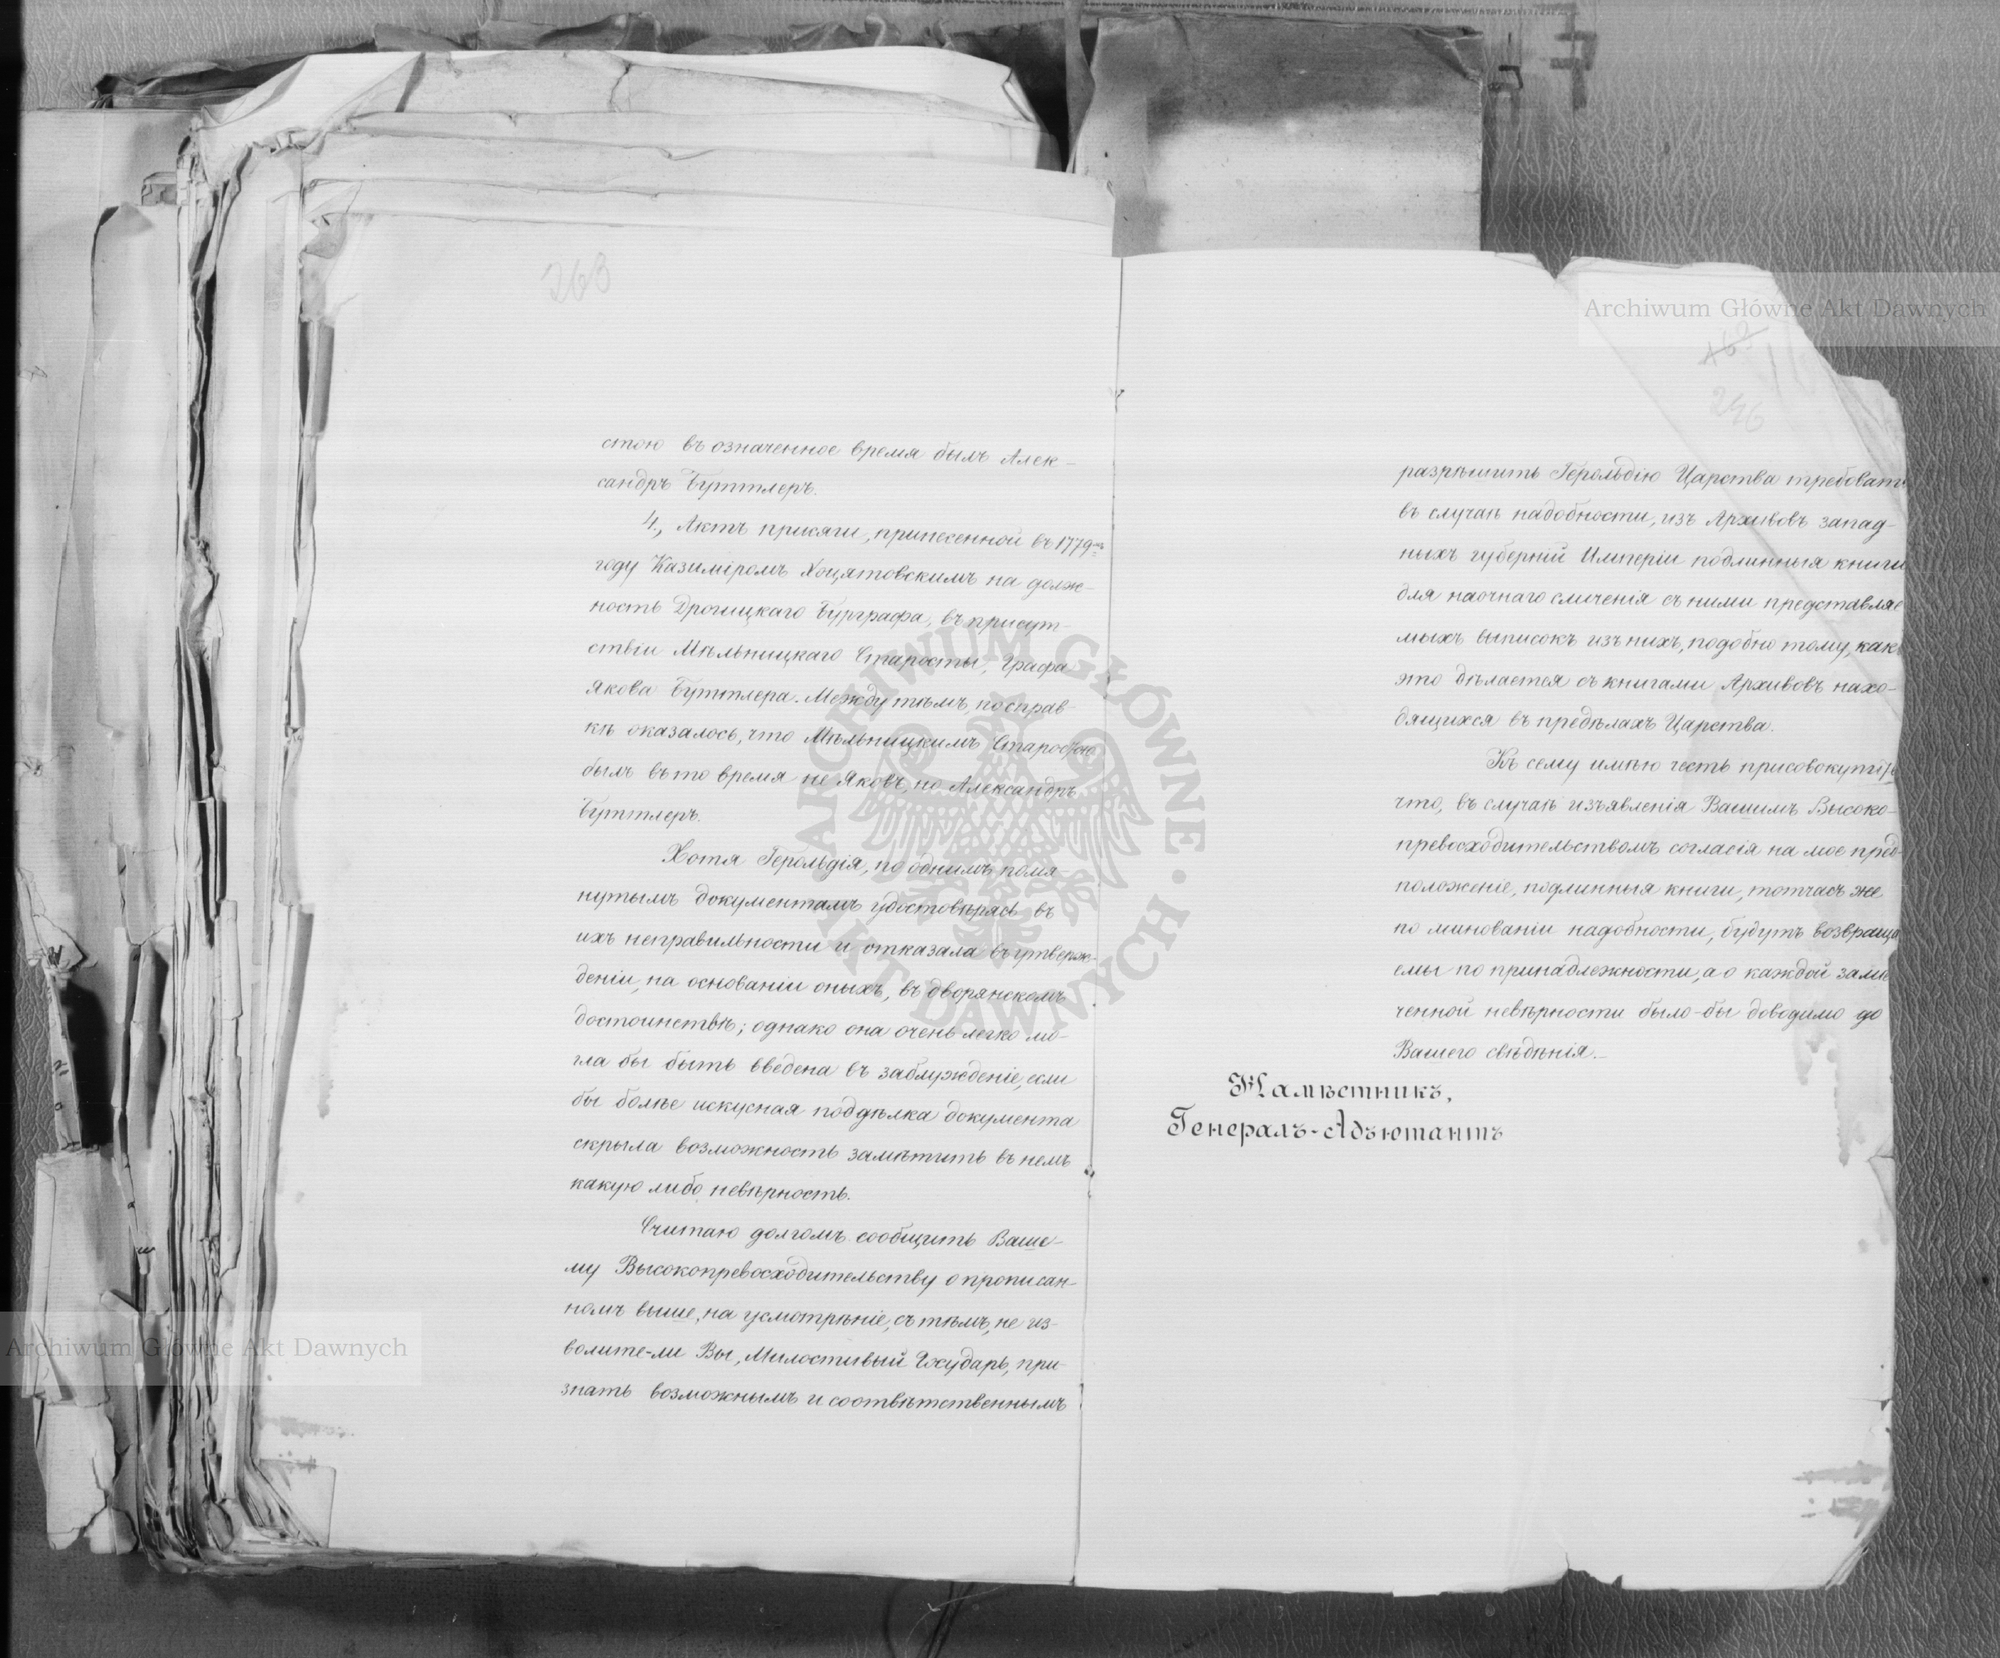 263
стою въ означенное время былъ Алек-
сандръ Буттлеръ.
4., Актъ присяги, принесенной въ 1779мъ
году Казиміромъ Хоцятовскимъ на долж-
ность Дрогицкаго Бурграфа, въ присут-
ствіи Мѣльницкаго Старосты, Графа
Якова Буттлера. Между тѣмъ, по справ-
кѣ оказалось, что Мѣльницкимъ Старостою
былъ въ то время не Яковъ, но Александръ
Буттлеръ.
Хотя Герольдія, по однимъ помя-
нутымъ документамъ удостовѣрясь въ
ихъ неправильности и отказала въ утверж-
деніи, на основаніи оныхъ, въ дворянскомъ
достоинствѣ; однако она очень легко мо-
гла бы быть введена въ заблужденіе, если
бы болѣе искусная поддѣлка документа
скрыла возможность замѣтить въ немъ
какую либо невѣрность.
Считаю долгомъ сообщить Ваше-
му Высокопревосходительству о прописан-
номъ выше, на усмотрѣніе, съ тѣмъ, не из-
волите-ли Вы, Милостивый Государь, при-
знать возможнымъ и соотвѣтственнымъ
163
246
разрѣшить Герольдію Царства требовать
въ случаѣ надобности, изъ Архивовъ запад-
ныхъ губерній Имперіи подлинныя книги
для наочнаго сличенія съ ними представляе
мыхъ выписокъ изъ нихъ, подобно тому, какъ
это дѣлается съ книгами Архивовъ нахо-
дящихся въ предѣлахъ Царства.
Къ сему имѣю честь присовокупить,
что, въ случаѣ изъявленія Вашимъ Высоко-
превосходительствомъ согласія на мое пред-
положеніе, подлинныя книги, тотчасъ же
по минованіи надобности, будутъ возвраща
емы по принадлежности, а о каждой замѣ
ченной невѣрности было-бы доводимо до
Вашего свѣдѣнія.
Намѣстникъ,
Генералъ-Адъютантъ
Archiwum Główne Akt Dawnych
Archiwum Główne Akt Dawnych
ARCHIWUM GŁÓWNE AKT DAWNYCH